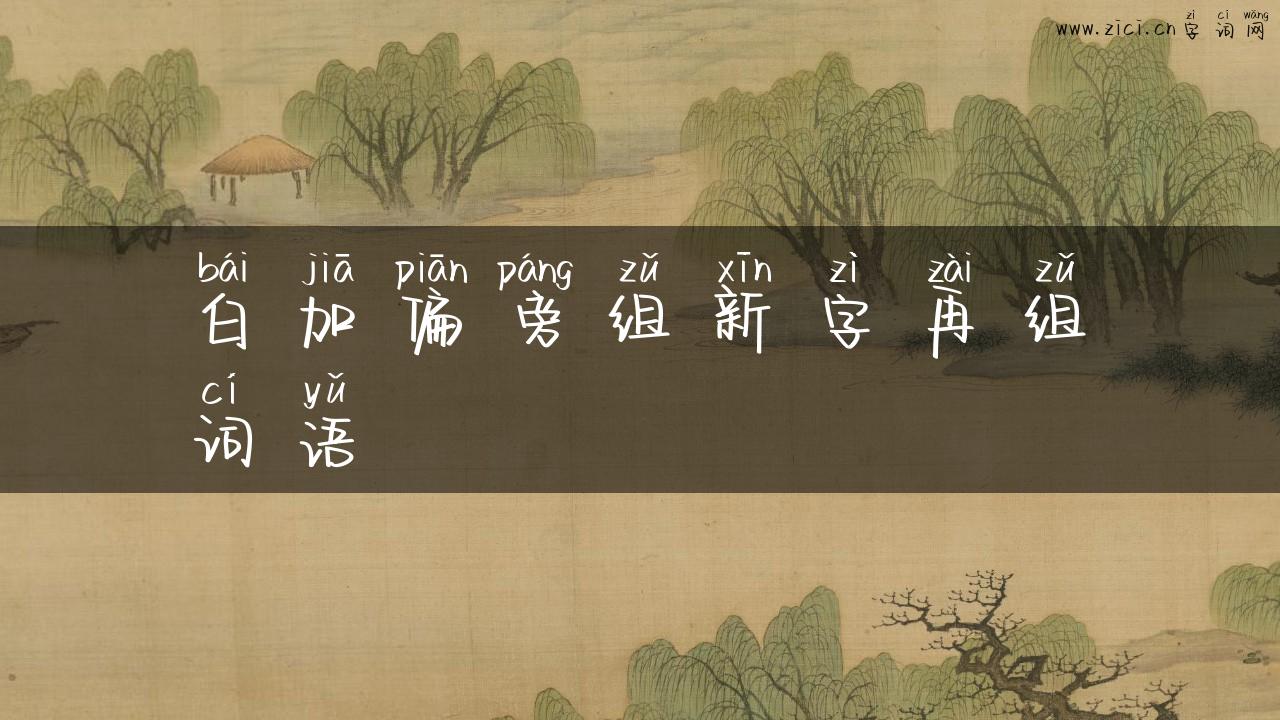 zì cí wǎng
www.zici.cn字词网
bái jiā piān páng zǔ xīn zì zài zǔ
白加偏旁组新字再组
cí yǔ
词语